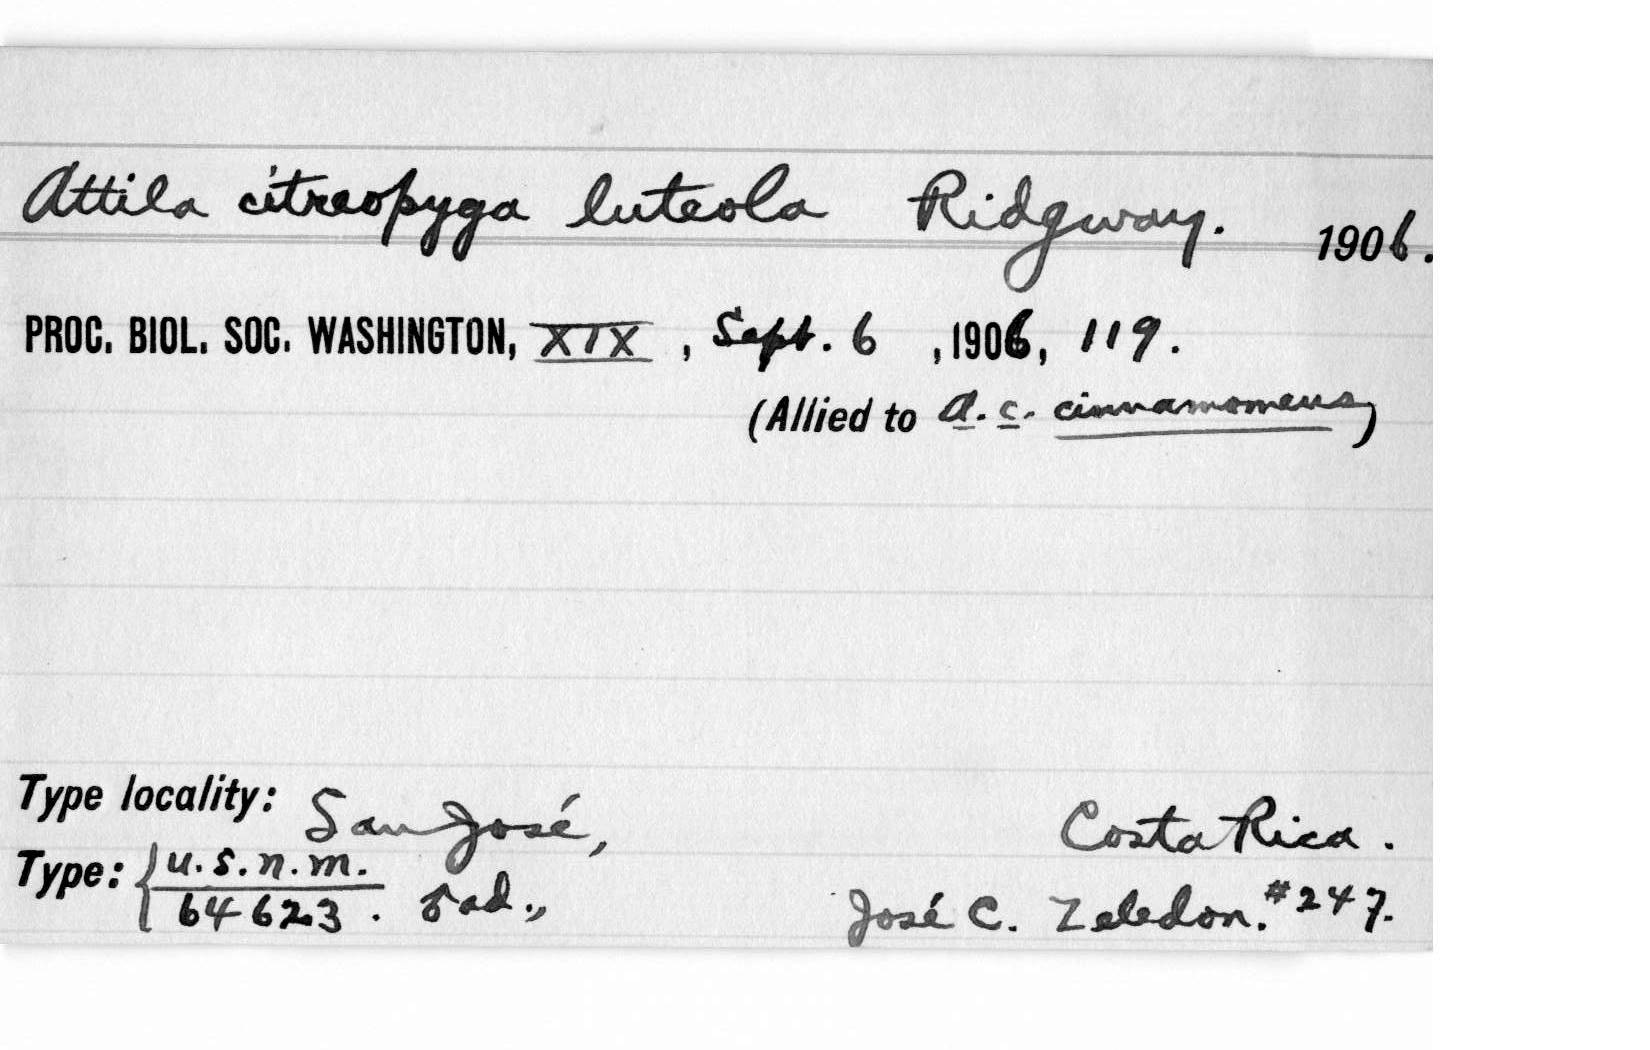 Attila citreopyga luteola Ridgway. 1906.
PROC. BIOL. SOC. WASHINGTON, XIX, Sept. 6, 1906, 119.
(Allied to A. c. cinnamomeus)
Type locality: San José, Costa Rica.
Type: { U.S.N.M.
64623. ♂ ad., José C. Zeledon. #247.